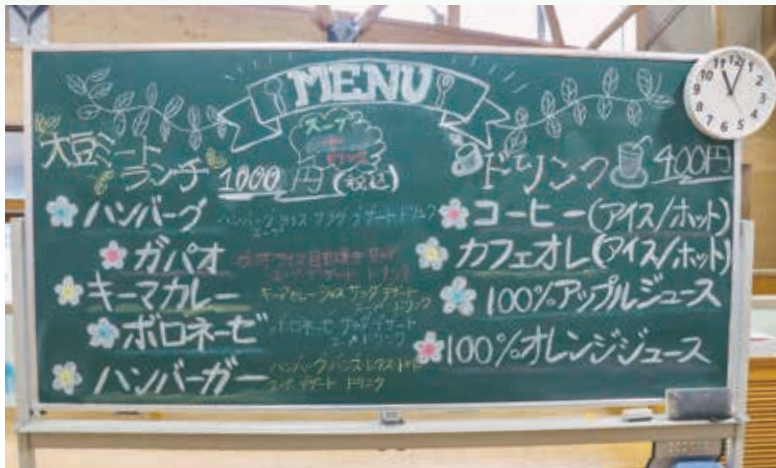 MENU
スープ
大豆ミート
ランチ 1000円(税込)
ハンバーグ
ハンバーグ ライス サラダ デザート ドリンク
スープ
ガパオ
ガパオライス 目玉焼き サラダ
スープ デザート ドリンク
キーマカレー
キーマカレー ライス サラダ デザート
スープ ドリンク
ボロネーゼ
ボロネーゼ サラダ デザート
スープ ドリンク
ハンバーガー
ハンバーグ バンズ レタス トマト
スープ デザート ドリンク
ドリンク 400円
コーヒー(アイス/ホット)
カフェオレ(アイス/ホット)
100%アップルジュース
100%オレンジジュース
12
1
2
3
4
5
6
7
8
9
10
11